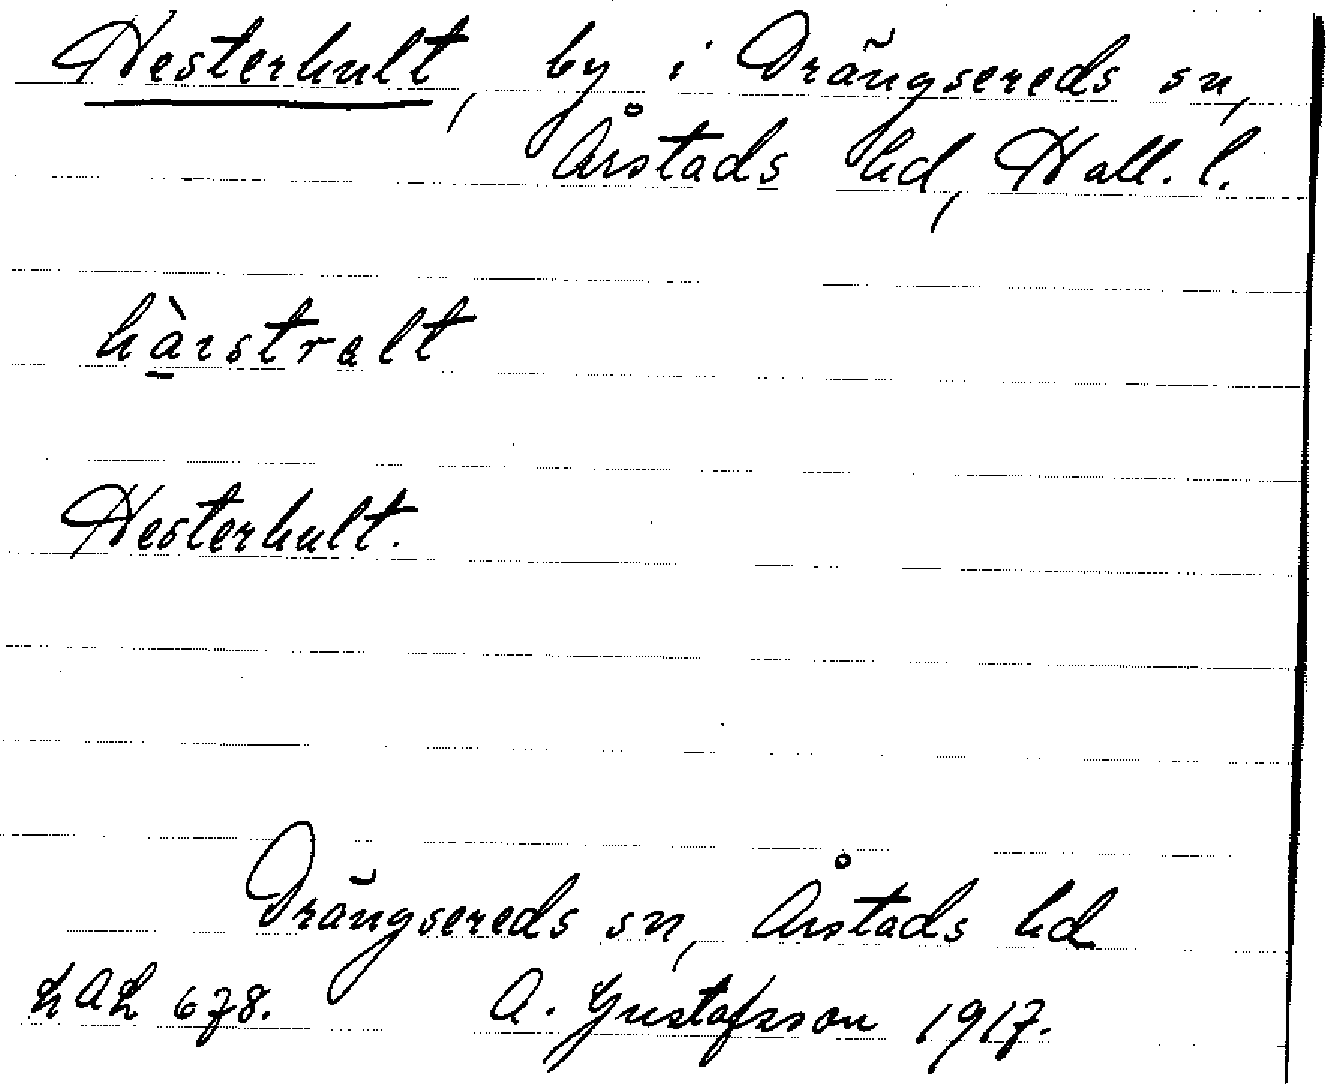 Hesterhult, by i Drängsereds sn,
Årstads hd, Hall. l.
hàrstralt
Hesterhult.
Drängsereds sn, Årstads hd
LAL 678. A. Gustafsson 1917.